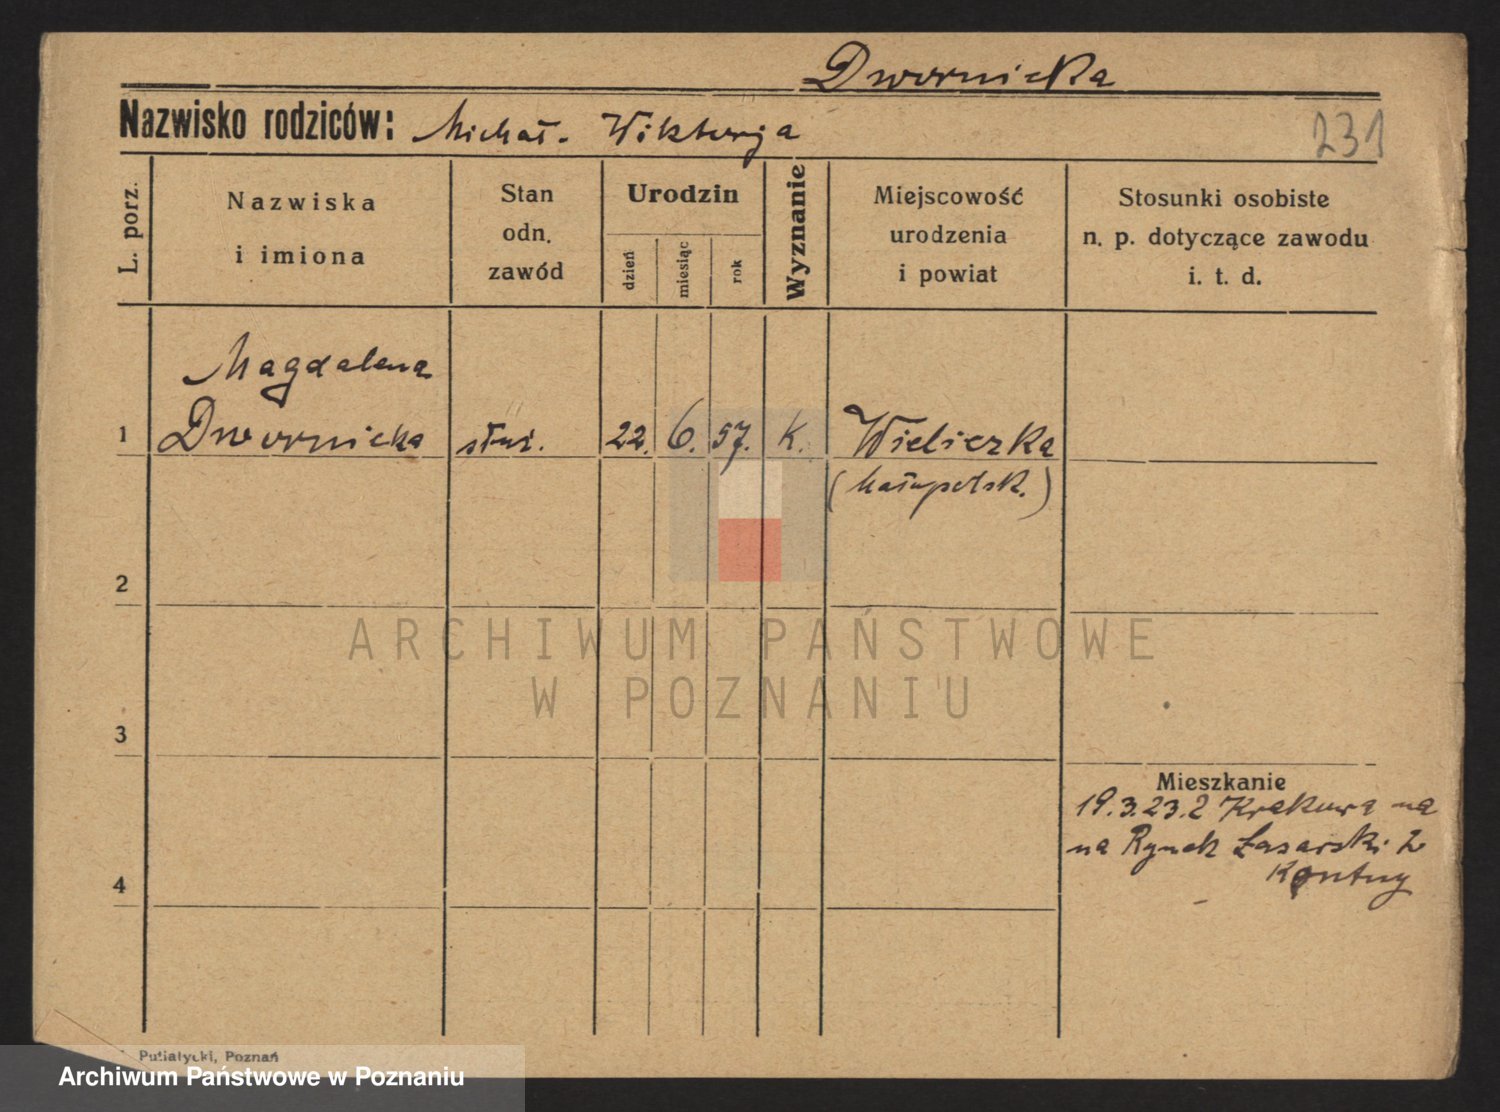 Dwornicka
Nazwisko rodziców: Michał. Wiktorja
231
L. porz.
Nazwiska
i imiona
Stan
odn.
zawód
Urodzin
dzień
miesiąc
rok
Wyznanie
Miejscowość
urodzenia
i powiat
Stosunki osobiste
n. p. dotyczące zawodu
i. t. d.
Magdalena
1 Dwornicka służ. 22. 6. 57. K. Wieliczka
(Małopolsk.)
2
3
4
Mieszkanie
19.3.23.2 Krakowa na
na Rynek Łazarski 2
ARCHIWUM PAŃSTWOWE
W POZNANIU
Putiatycki, Poznań
Archiwum Państwowe w Poznaniu